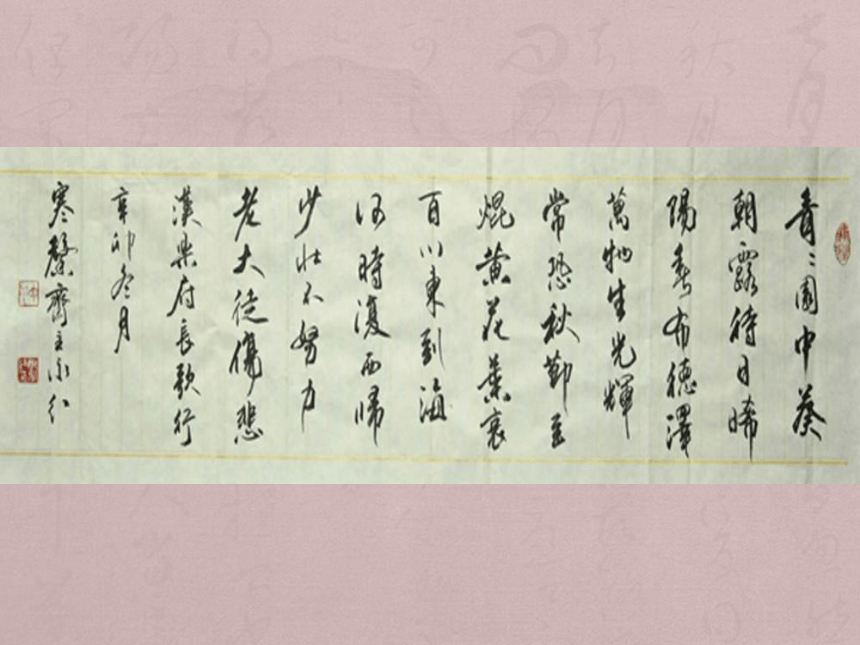 青〻園中葵
朝露待日晞
陽春布德澤
萬物生光輝
常恐秋節至
焜黄花葉衰
百川東到海
何時復西歸
少壯不努力
老大徒傷悲
漢樂府長歌行
辛卯冬月
寒馨齋主